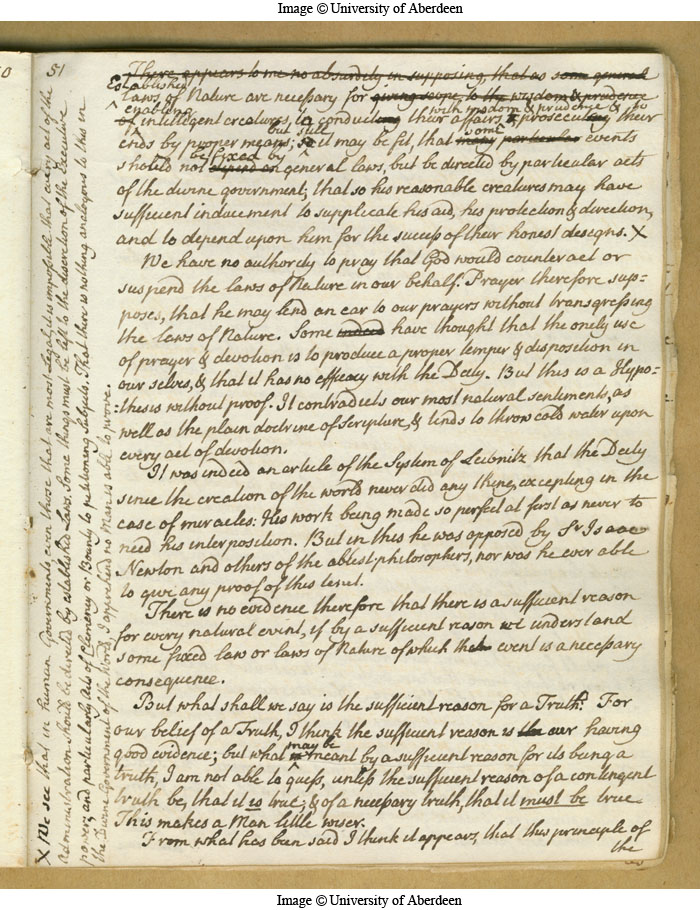 Image © University of Aberdeen
51
There appears to me no absurdity in supposing, that as some general
Established
Laws of Nature are necessary for giving scope to the wisdom & prudence
enabling to with wisdom & prudence & to
of intelligent creatures, in conducting their affairs & prosecuting their
but still some
ends by proper means; so it may be fit, that many particular events
be fixed by
should not depend on general laws, but be directed by particular acts
of the divine government, that so his reasonable creatures may have
sufficient inducement to supplicate his aid, his protection & direction,
and to depend upon him for the success of their honest designs. X
We have no authority to pray that God would counteract or
suspend the laws of Nature in our behalf. Prayer therefore sup=
poses, that he may lend an ear to our prayers without transgressing
the laws of Nature. Some indeed have thought that the onely use
of prayer & devotion is to produce a proper temper & disposition in
our selves, & that it has no efficacy with the Deity. But this is a Hypo=
=thesis without proof. It contradicts our most natural sentiments, as
well as the plain doctrine of Scripture, & tends to throw cold water upon
every act of devotion.
It was indeed an article of the System of Leibnitz that the Deity
since the creation of the world never did any thing, excepting in the
case of miracles: His work being made so perfect at first as never to
need his interposition. But in this he was opposed by Sr Isaac
Newton and others of the ablest philosophers, nor was he ever able
to give any proof of this tenet.
There is no evidence therefore that there is a sufficient reason
for every natural event, if by a sufficient reason we understand
some fixed law or laws of Nature of which that event is a necessary
consequence.
But what shall we say is the sufficient reason for a Truth? For
our belief of a Truth, I think the sufficient reason is our having
may be
good evidence; but what is meant by a sufficient reason for its being a
truth, I am not able to guess, unless the sufficient reason of a contingent
truth be, that it is true; & of a necessary truth, that it must be true.
This makes a Man little wiser.
From what has been said I think it appears, that this principle of
the
X We see that in human Governments, even those that are most Legal, it is impossible that every act of the
administration should be directed by established Laws. Some things must be left to the discretion of the Executive
power, and particularly Acts of Clemency or Bounty to petitioning Subjects. That there is nothing analogous to this in
the Divine Government of the World, I apprehend no Man is able to prove.
Image © University of Aberdeen